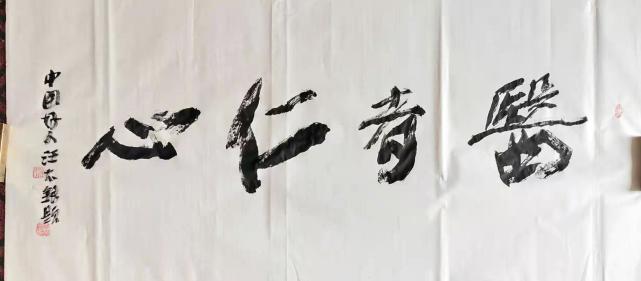 醫者仁心
中国好人汪太银题